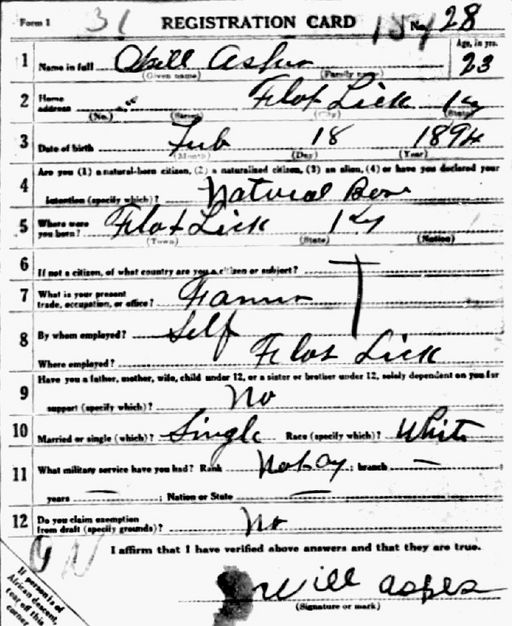 Form 1 31 REGISTRATION CARD No. 28
1 Name in full Will Asher Age, in yrs. 23
(Given name) (Family name)
2 Home address Flat Lick Ky
(No.) (Street) (City) (State)
3 Date of birth Feb 18 1894
(Month) (Day) (Year)
Are you (1) a natural-born citizen, (2) a naturalized citizen, (3) an alien, (4) or have you declared your
4 intention (specify which)? Natural Born
5 Where were you born? Flat Lick Ky
(Town) (State) (Nation)
6 If not a citizen, of what country are you a citizen or subject?
7 What is your present trade, occupation, or office? Farmer
8 By whom employed? Self
Where employed? Flat Lick
Have you a father, mother, wife, child under 12, or a sister or brother under 12, solely dependent on you for
9 support (specify which)? No
10 Married or single (which)? Single Race (specify which)? White
11 What military service have you had? Rank ; branch —
years — ; Nation or State —
12 Do you claim exemption from draft (specify grounds)? No
I affirm that I have verified above answers and that they are true.
Will Asher
(Signature or mark)
If person is of
African descent,
tear off this
corner